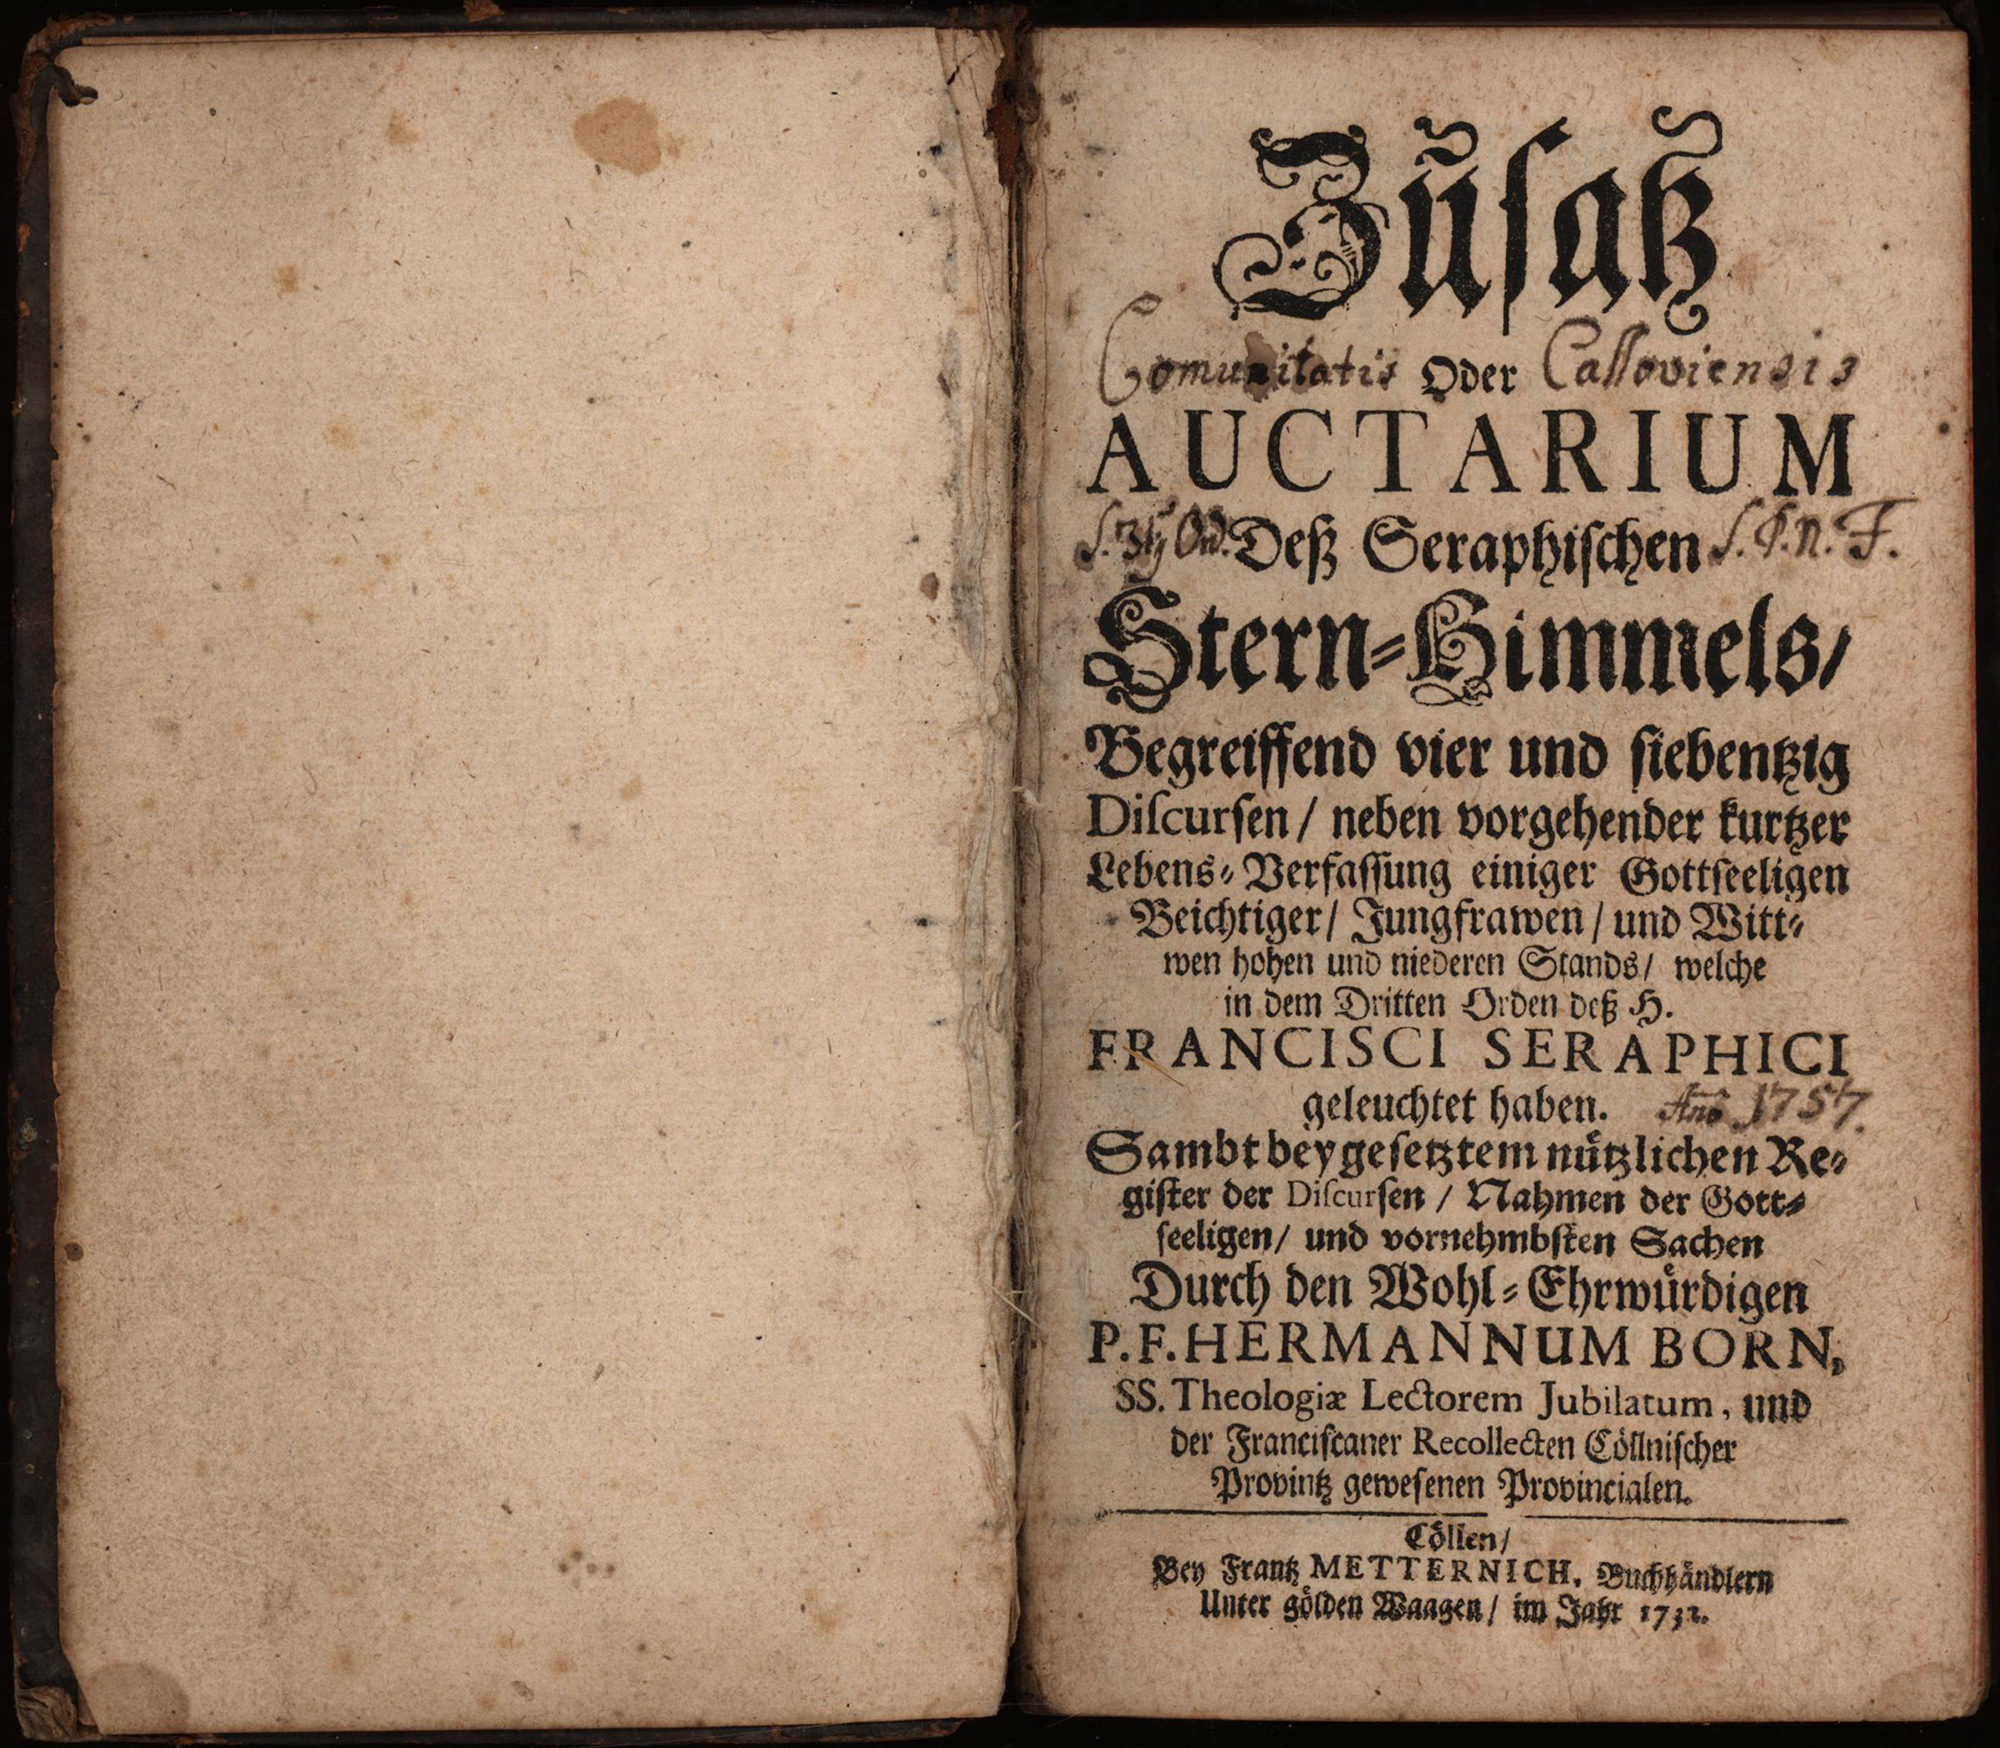 Zůſatz
Comunitatis Oder Calloviensis
AUCTARIUM
S. 3tij Ord. Deß Seraphiſchen S. P. N. F.
Stern-Himmels/
Begreiffend vier und ſiebentzig
Diſcurſen / neben vorgehender kurtzer
Lebens-Verfaſſung einiger Gottſeeligen
Beichtiger/ Jungfrawen / und Witt-
wen hohen und niederen Stands/ welche
in dem Dritten Orden deß H.
FRANCISCI SERAPHICI
geleuchtet haben. Anō 1757.
Sambt beygeſetztem nützlichen Re-
giſter der Diſcurſen / Nahmen der Gott-
ſeeligen/ und vornehmbſten Sachen
Durch den Wohl-Ehrwürdigen
P. F. HERMANNUM BORN,
SS. Theologiæ Lectorem Jubilatum, und
der Franciſcaner Recollecten Cöllniſcher
Provintz geweſenen Provincialen.
Cöllen/
Bey Frantz METTERNICH, Buchhändlern
Unter gölden Waagen/ im Jahr 1732.